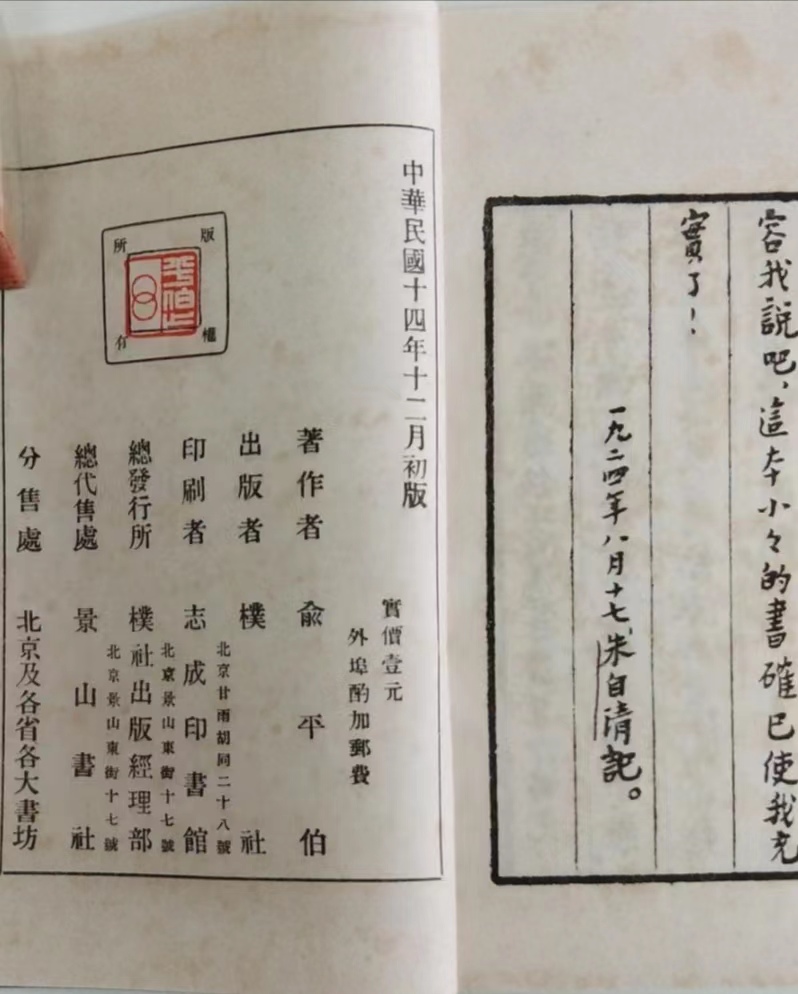 容我說吧，這本小々的書確已使我充
實了！
一九二四年八月十七，朱自清記。
中華民國十四年十二月初版
實價壹元
外埠酌加郵費
版權所有
平伯
著作者 俞平伯
出版者 樸社
北京甘雨胡同二十八號
印刷者 志成印書館
北京景山東街十七號
總發行所 樸社出版經理部
北京景山東街十七號
總代售處 景山書社
分售處 北京及各省各大書坊